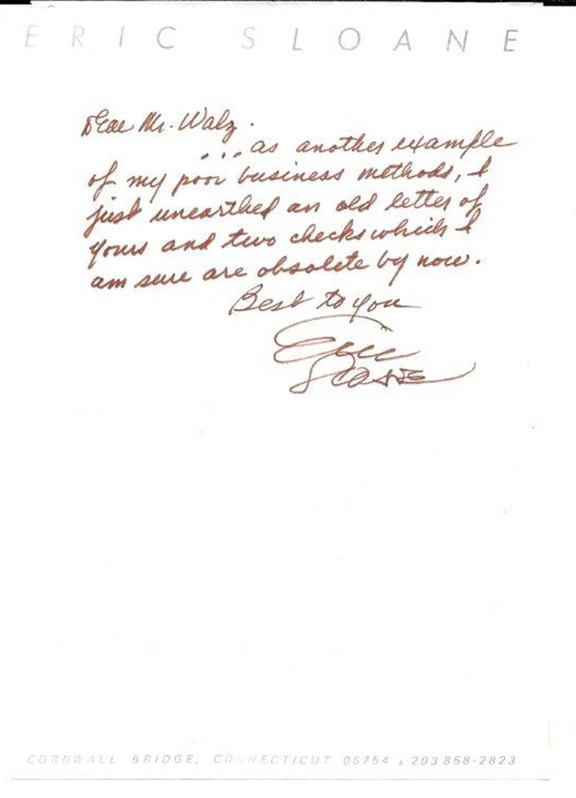 ERIC SLOANE
Dear Mr. Walz.
... as another example
of my poor business methods, I
just unearthed an old letter of
yours and two checks which I
am sure are obsolete by now.
Best to you
Eric
Sloane
CORNWALL BRIDGE, CONNECTICUT 06754 & 203 868-2823